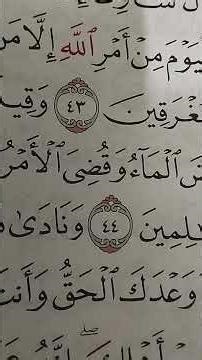 لْيَوْمَ مِنْ أَمْرِ ٱللَّهِ إِلَّا مَن
ٱلْمُغْرَقِينَ ٤٣ وَقِيلَ
ٱلْمَآءُ وَقُضِىَ ٱلْأَمْرُ
ٱلظَّٰلِمِينَ ٤٤ وَنَادَىٰ
وَعْدَكَ ٱلْحَقُّ وَأَنتَ